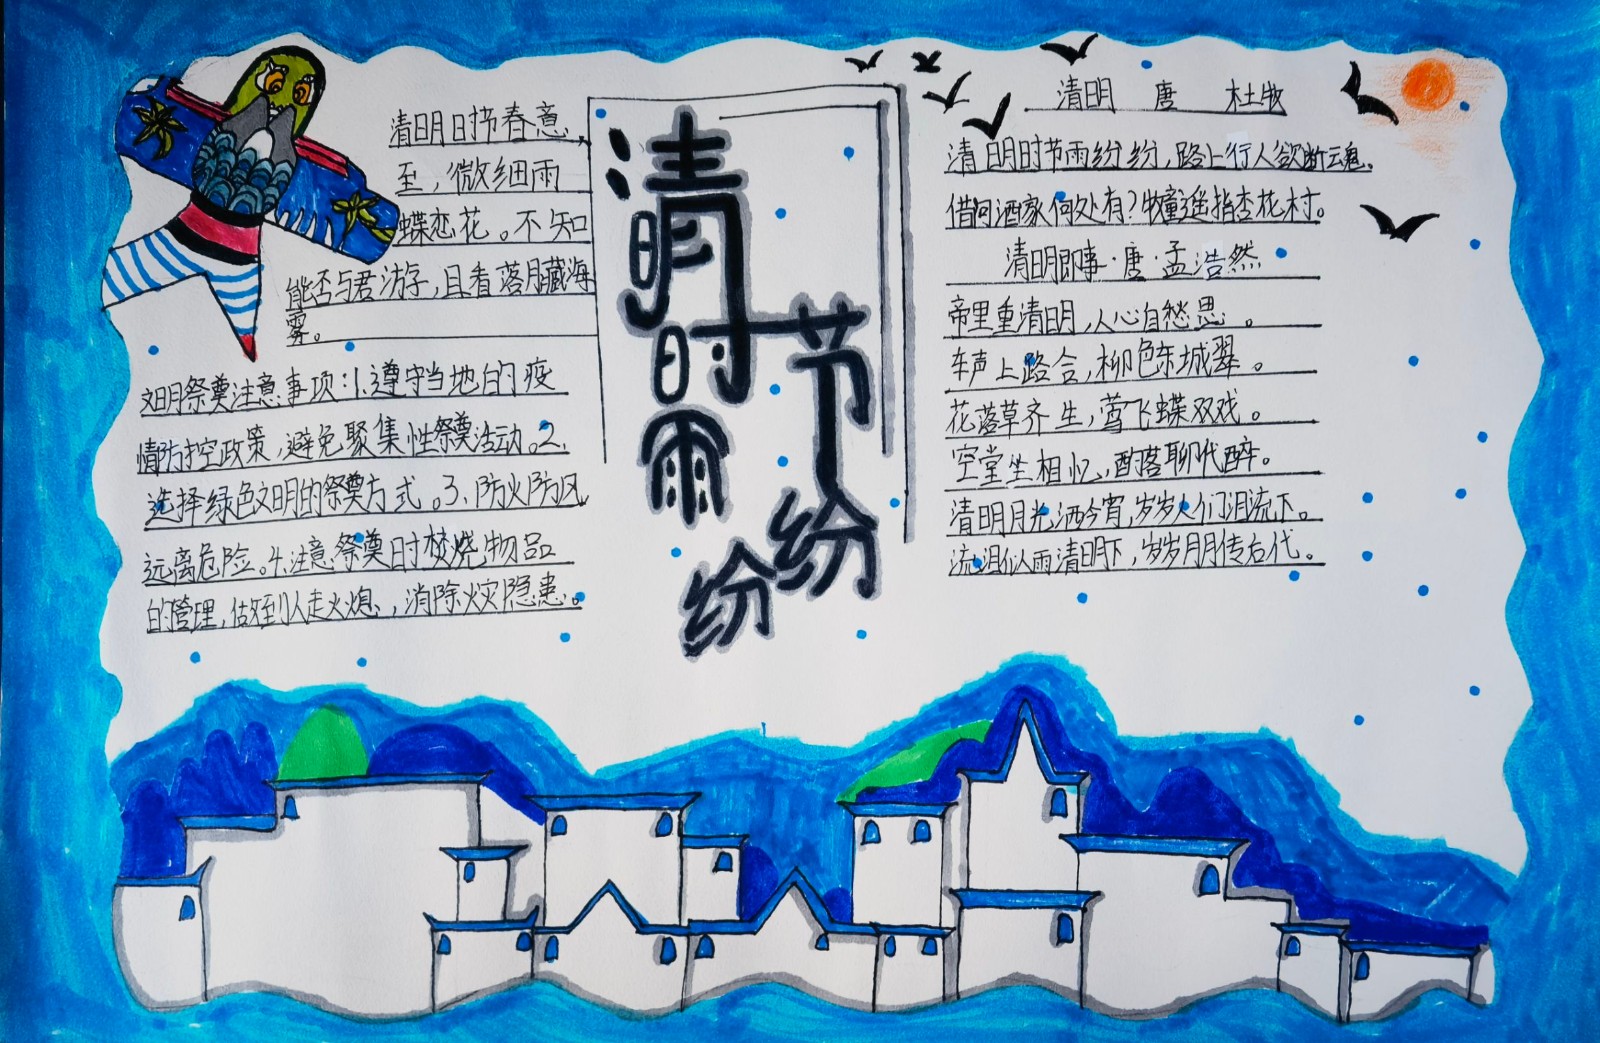 清明时节春意
至，微细雨
蝶恋花。不知
能否与君游子，且看落月藏海
雾。
文明祭奠注意事项：1.遵守当地的疫
情防控政策，避免聚集性祭奠活动。2.
选择绿色文明的祭奠方式。3、防火防风
远离危险。4.注意祭奠时焚烧物品
的管理，做到人走火熄，消除火灾隐患。
清明时节雨纷纷
清明 唐 杜牧
清明时节雨纷纷，路上行人欲断魂。
借问酒家何处有？牧童遥指杏花村。
清明即事·唐·孟浩然
帝里重清明，人心自愁思。
车声上路合，柳色东城翠。
花落草齐生，莺飞蝶双戏。
空堂坐相忆，酌茗聊代醉。
清明月光洒今宵，岁岁人们泪流下。
流泪似雨清明下，岁岁月月传后代。